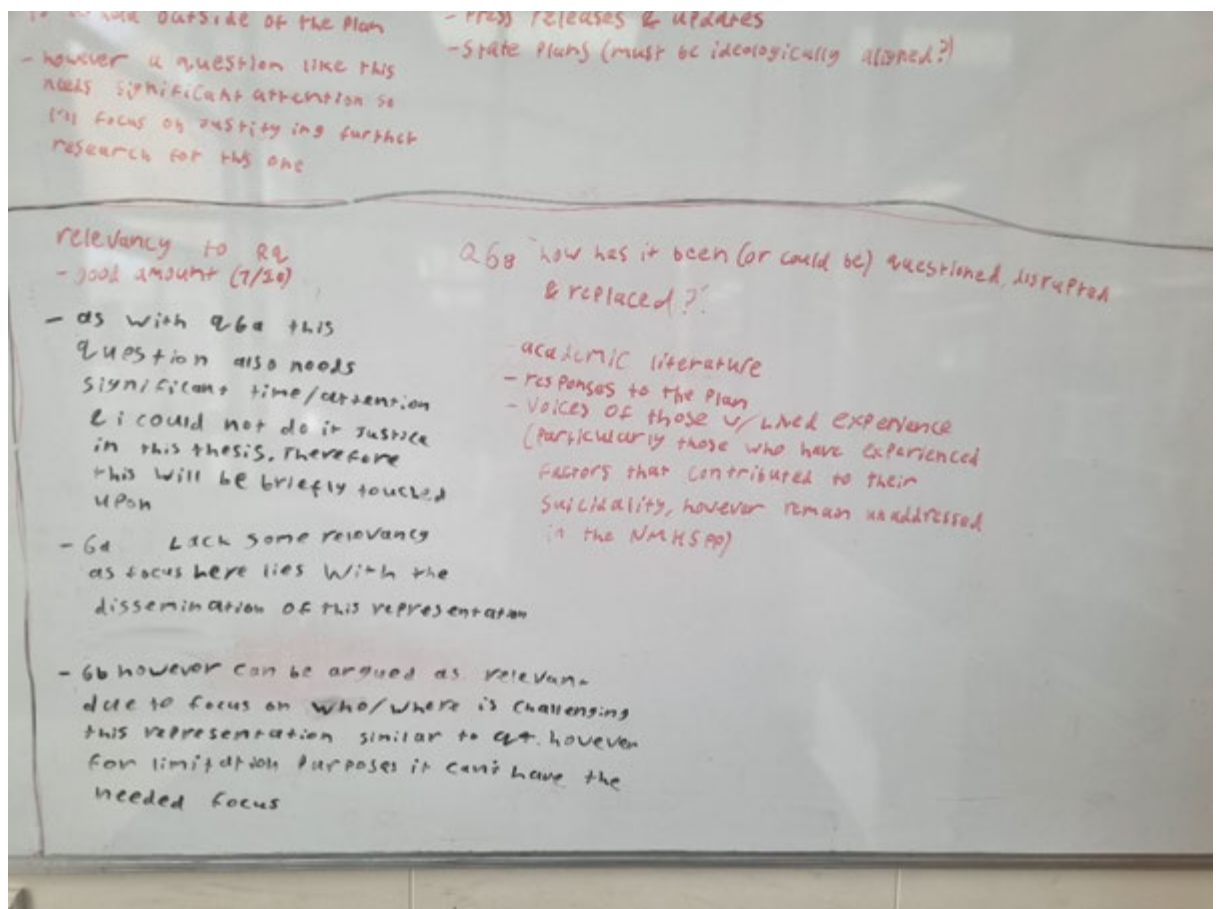 outside of the Plan
- however a question like this
needs significant attention so
focus on justifying further
research for this one
- Press releases & updates
- State Plans (must be ideologically aligned?)
relevancy to RQ
- good amount (7/10)
- as with Q6a this
question also needs
significant time/attention
& i could not do it justice
in this thesis. Therefore
this will be briefly touched
upon
- 6a Lack some relevancy
as focus here lies with the
dissemination of this representation
- 6b however can be argued as relevant
due to focus on who/where is challenging
this representation similar to Q4. however
for limitation purposes it can't have the
needed focus
Q6B "how has it been (or could be) questioned, disrupted
& replaced?"
- academic literature
- responses to the Plan
- Voices of those w/ Lived experience
(Particularly those who have experienced
factors that contributed to their
suicidality, however remain unaddressed
in the NMHSPP)